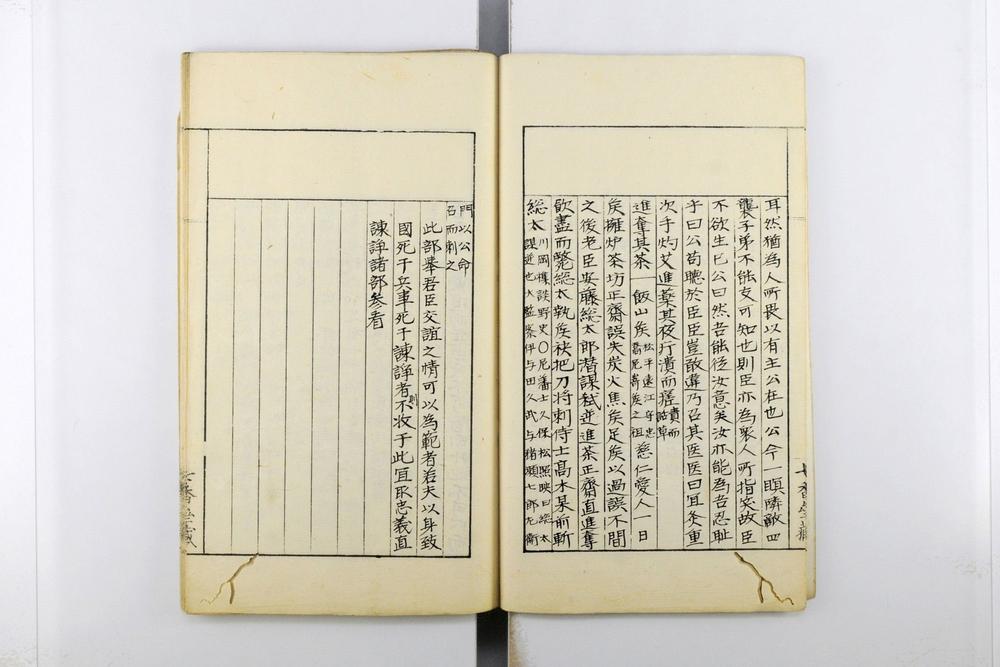 耳然猶為人所畏以有主公在也公今一瞑隣敵四
襲子弟不能支可知也則臣亦為衆人所指笑故臣
不欲生已公曰然吾能從汝意矣汝亦能為吾忍耻
乎曰公苟聽於臣臣豈敢違乃召其医医曰宜灸重
次手灼艾進藥其夜疔潰而瘥
進奪其茶一飯山矦松平遠江守忠
喬尼崎矦之祖慈仁愛人一日
矦擁炉茶坊正齋誤失炭火焦矦足矦以過誤不問
之後老臣安藤総太郎潜謀弑逆進茶正齋直進奪
飲盡而斃総太執矦袂把刀将刺侍士髙木某前斬
総太川岡樵談野史〇尼藩士久保松照映曰総太
謀逆也大監察伊与田久武与猪瀬七郎左衛
門以公命
召而刺之
此部擧君臣交誼之情可以為範者若夫以身致
國死于兵事死于諫諍者則不收于此宜取忠義直
諫諍諸部参看